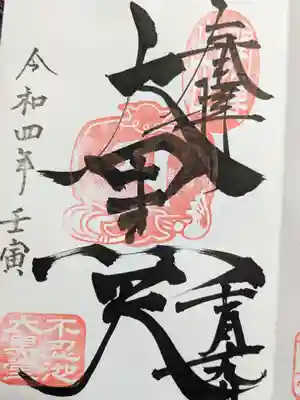 奉拝
大黒天
令和四年 壬寅
不忍池
大黒堂